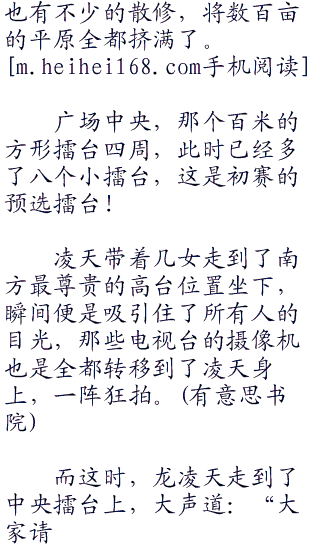 也有不少的散修，将数百亩
的平原全都挤满了。
[m.heihei168.com手机阅读]
广场中央，那个百米的
方形擂台四周，此时已经多
了八个小擂台，这是初赛的
预选擂台！
凌天带着几女走到了南
方最尊贵的高台位置坐下，
瞬间便是吸引住了所有人的
目光，那些电视台的摄像机
也是全都转移到了凌天身
上，一阵狂拍。(有意思书
院)
而这时，龙凌天走到了
中央擂台上，大声道：“大
家请